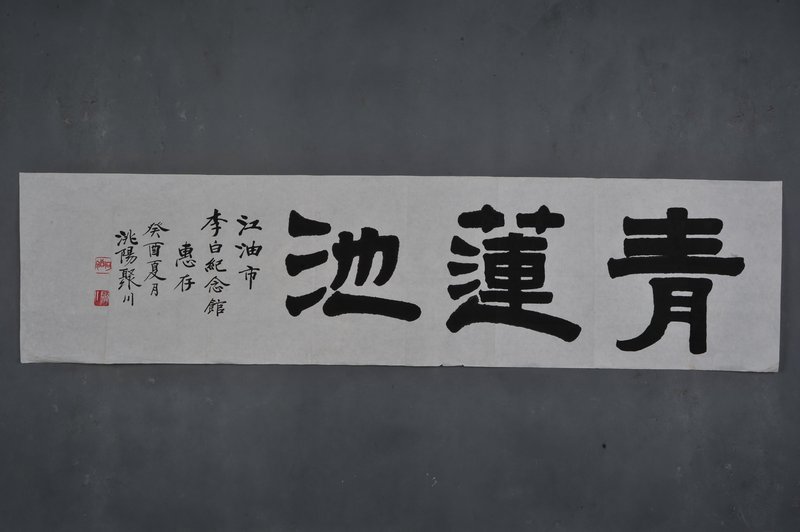 青蓮池
江油市
李白紀念館
惠存
癸酉夏月
洮陽聚川